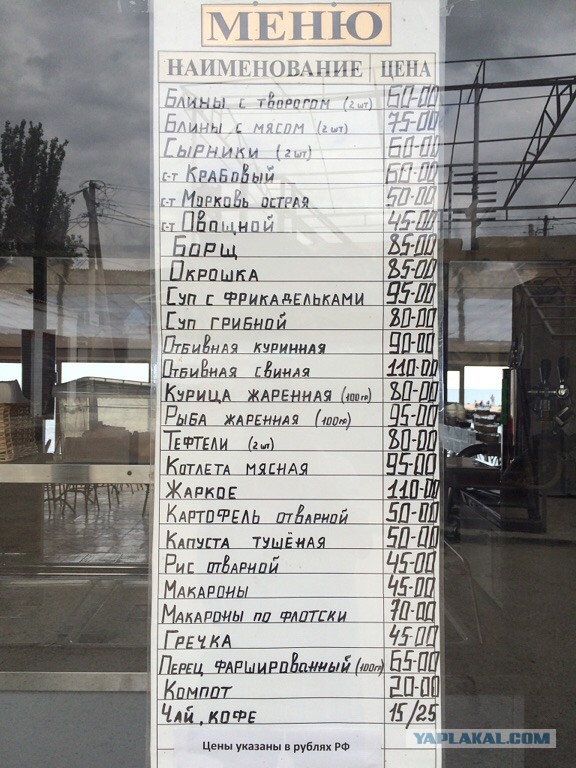 МЕНЮ
НАИМЕНОВАНИЕ ЦЕНА
Блины с творогом (2 шт) 60-00
Блины с мясом (2 шт) 75-00
Сырники (2 шт) 60-00
с-т Крабовый 60-00
с-т Морковь острая 50-00
с-т Овощной 45-00
Борщ 85-00
Окрошка 85-00
Суп с фрикадельками 95-00
Суп грибной 80-00
Отбивная куринная 90-00
Отбивная свиная 110-00
Курица жаренная (100гр) 80-00
Рыба жаренная (100гр) 95-00
Тефтели (2 шт) 80-00
Котлета мясная 95-00
Жаркое 110-00
Картофель отварной 50-00
Капуста тушёная 50-00
Рис отварной 45-00
Макароны 45-00
Макароны по флотски 70-00
Гречка 45-00
Перец фаршированный (100гр) 65-00
Компот 20-00
Чай, кофе 15/25
Цены указаны в рублях РФ
YAPLAKAL.COM